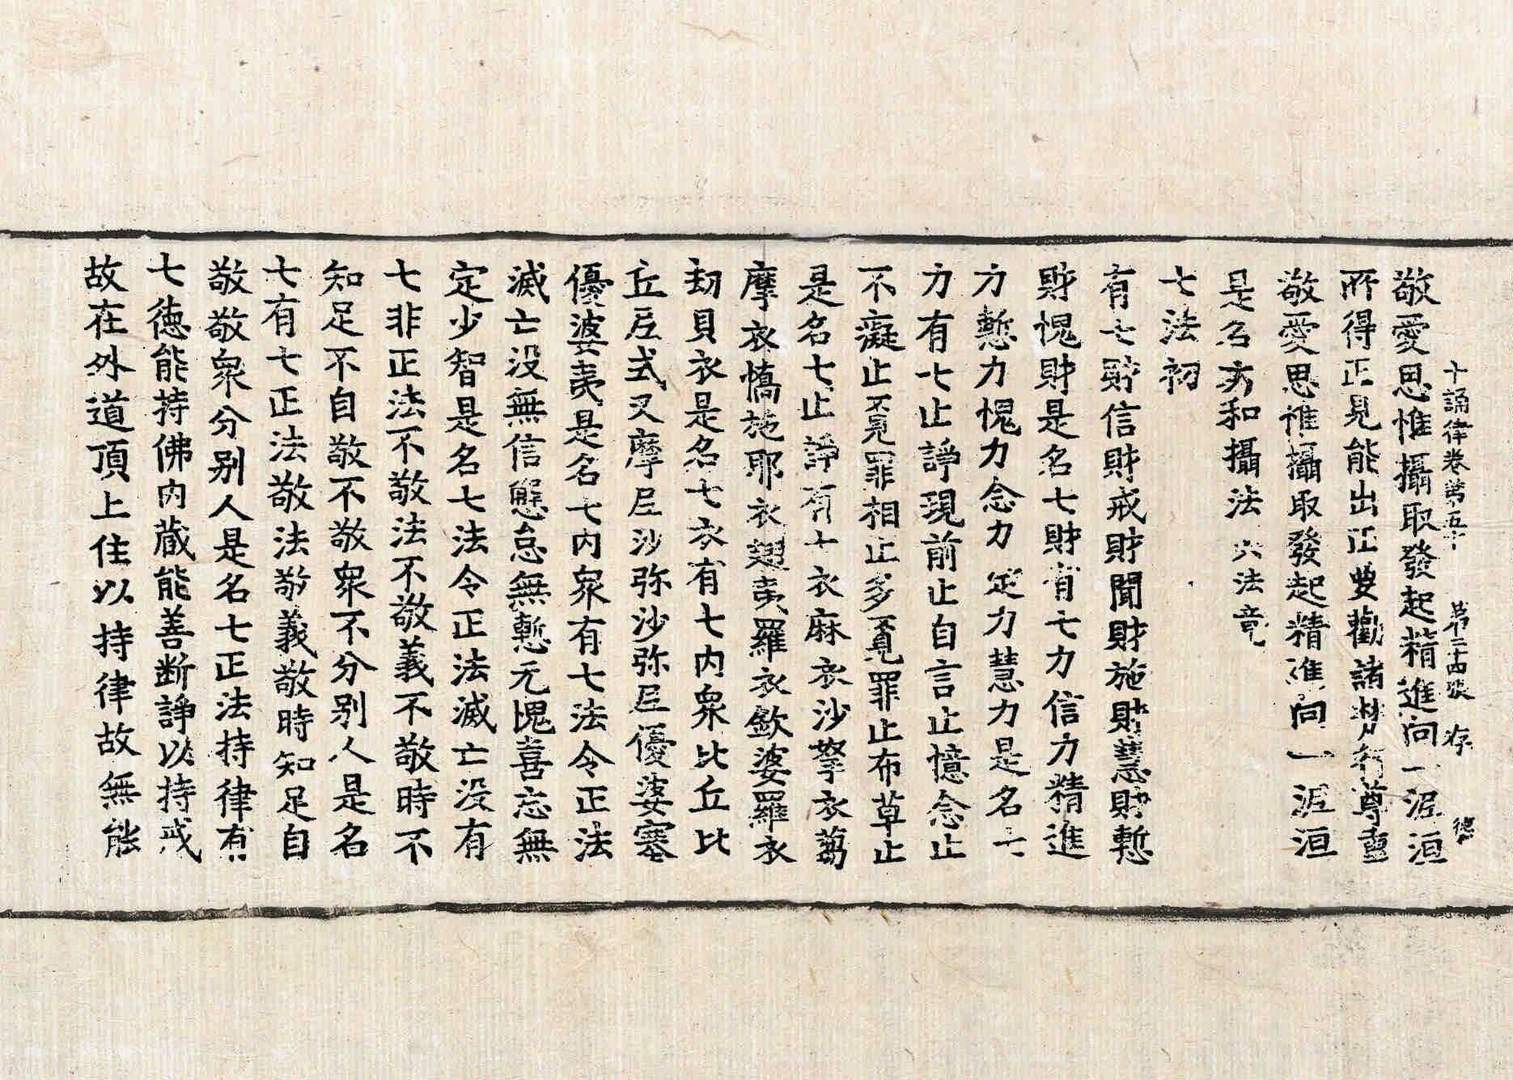 十誦律卷第五十 第二十四張 存 德
敬愛思惟攝取發起精進向一泥洹
所得正見能出正要勸諸梵行尊重
敬愛思惟攝取發起精進向一泥洹
是名六和攝法 六法竟
七法初
有七財信財戒財聞財施財慧財慙
財愧財是名七財有七力信力精進
力慙力愧力念力定力慧力是名七
力有七止諍現前止自言止憶念止
不癡止覓罪相止多覓罪止布草止
是名七止諍有七衣麻衣沙拏衣芻
摩衣憍施耶衣翅夷羅衣欽婆羅衣
劫貝衣是名七衣有七內眾比丘比
丘尼式叉摩尼沙弥沙弥尼優婆塞
優婆夷是名七內眾有七法令正法
滅亡没無信懈怠無慙无愧喜忘無
定少智是名七法令正法滅亡没有
七非正法不敬法不敬義不敬時不
知足不自敬不敬眾不分別人是名
七有七正法敬法敬義敬時知足自
敬敬眾分別人是名七正法持律有
七德能持佛內藏能善断諍以持戒
故在外道頂上住以持律故無能